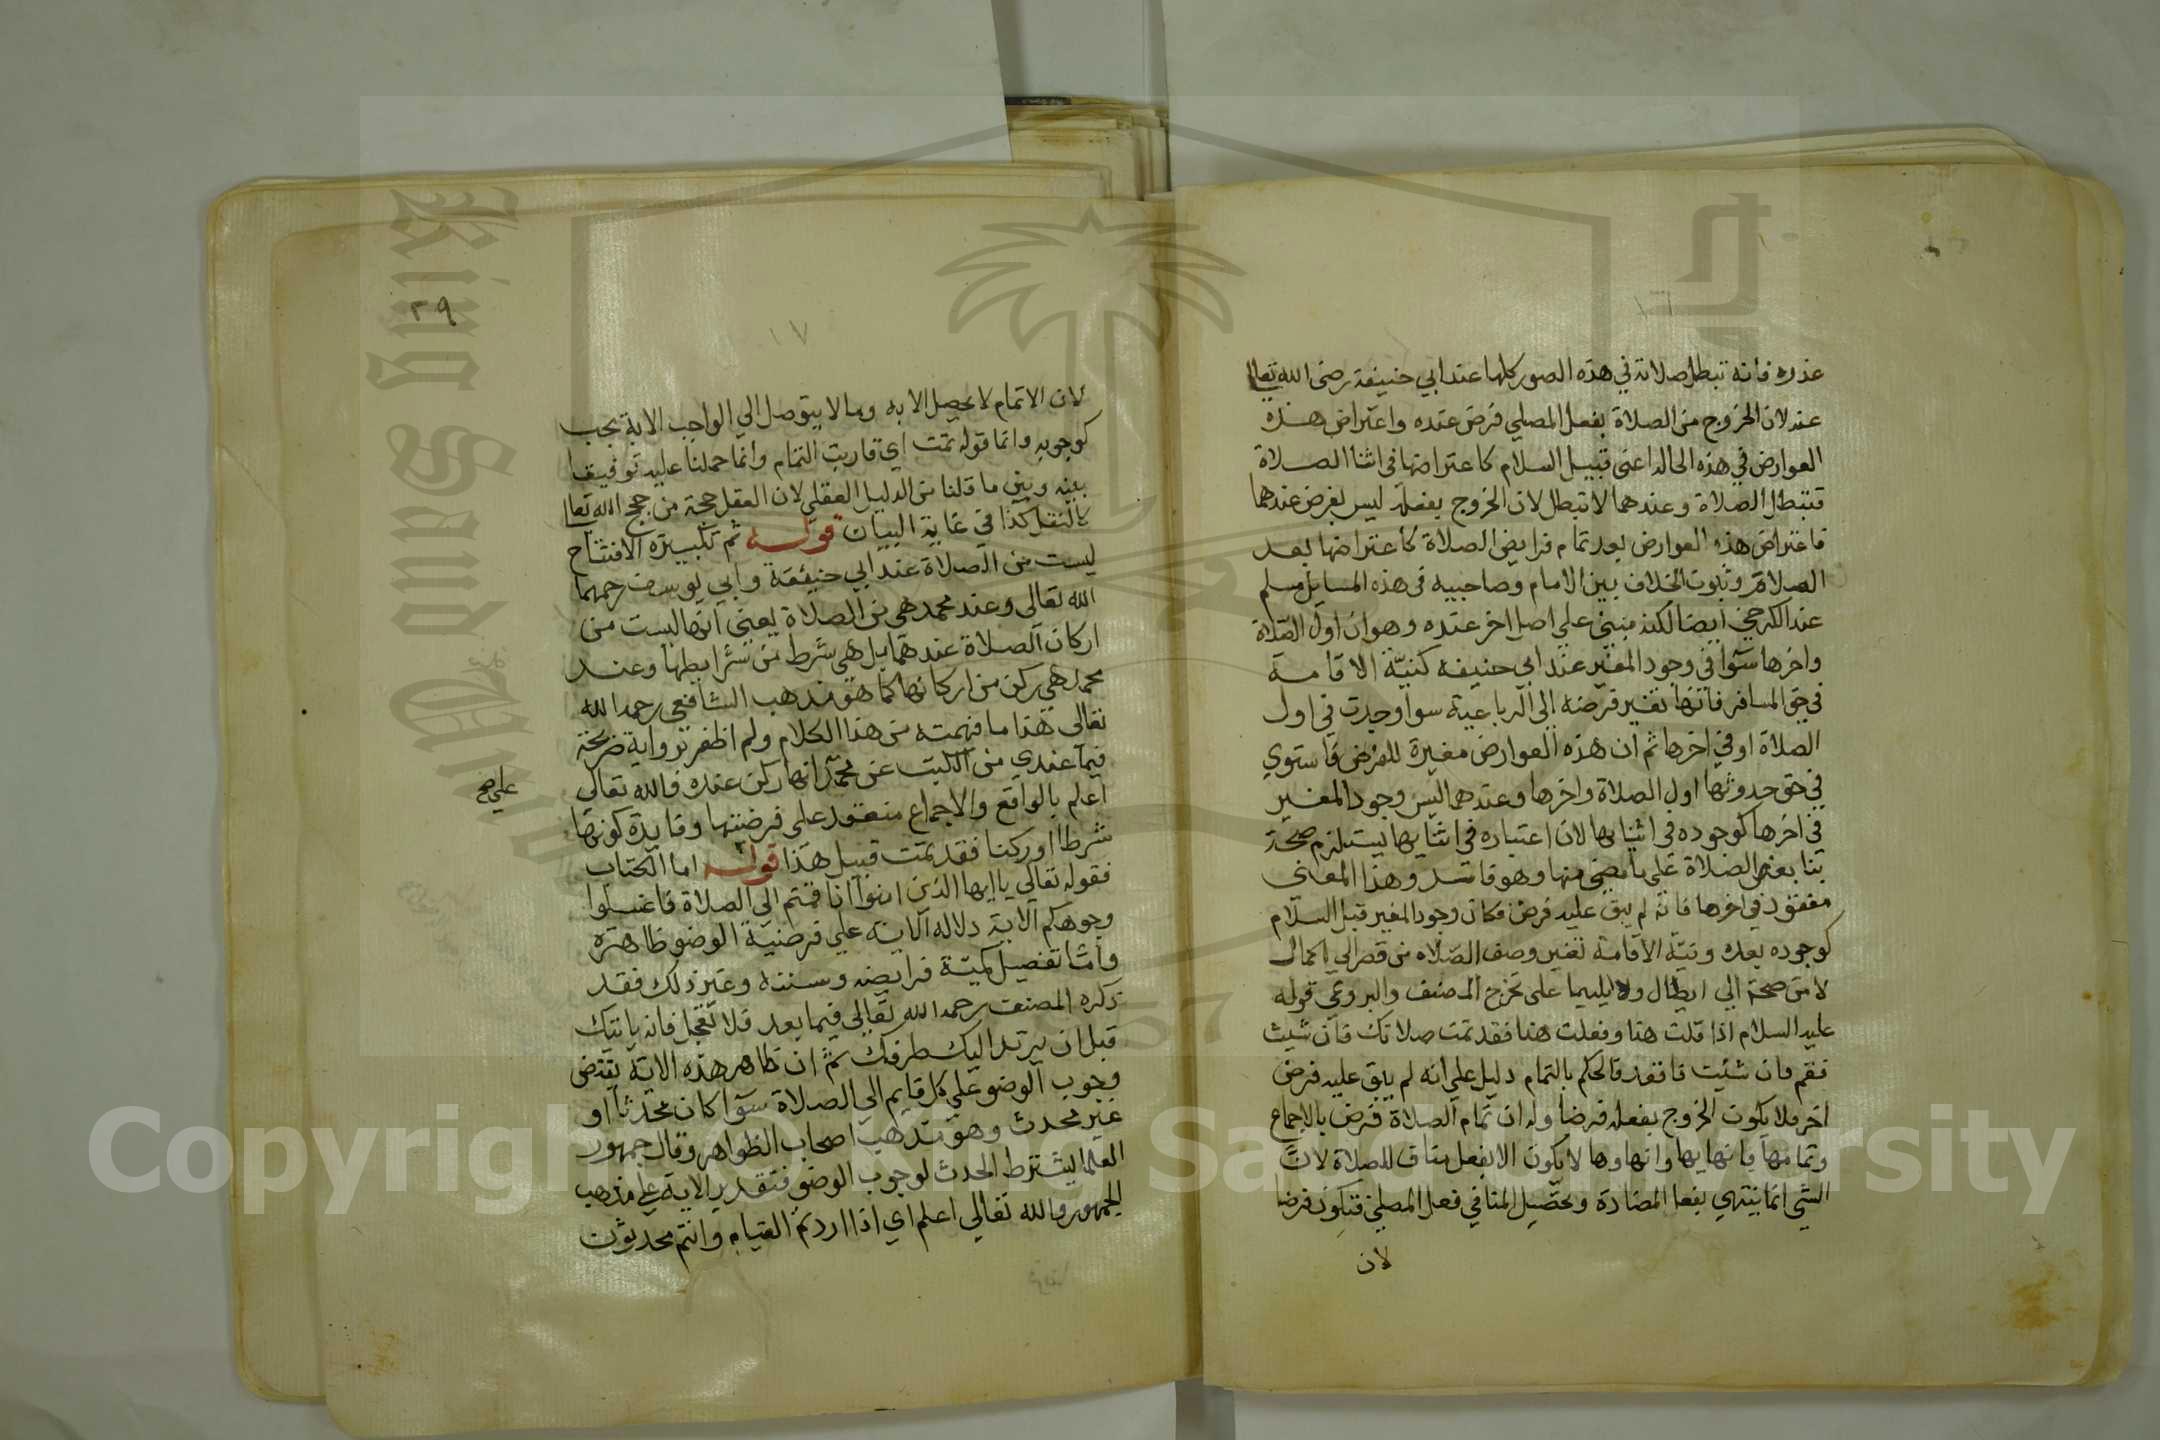 ١٦
عذره فانه تبطل صلاته في هذه الصور كلها عند ابي حنيفة رضى الله تعالى
عنه لان الخروج من الصلاة بفعل المصلي فرض عنده واعتراض هذه
العوارض في هذه الحالة اعنى قبيل السلام كاعتراضها في اثنا الصلاة
فتبطل الصلاة وعندهما لا تبطل لان الخروج بفعله ليس بفرض عندهما
فاعتراض هذه العوارض بعد تمام فرايض الصلاة كاعتراضها بعد
الصلاة وثبوت الخلاف بين الامام وصاحبيه في هذه المسايل مسلم
عند الكرخي ايضا لكنه مبني على اصل اخر عنده وهو ان اول الصلاة
واخرها سوآ في وجود المغير عند ابي حنيفه كنية الاقامة
في حق المسافر فانها تغير فرضه الى الرباعية سوآ وجدت في اول
الصلاة او في اخرها ثم ان هذه العوارض مغيرة للفرض فاستوي
في حق حدوثها اول الصلاة واخرها وعندهما ليس وجود المغير
في اخرها كوجوده في اثنايها لان اعتباره في اثنايها يستلزم صحة
بنا بعض الصلاة على ما مضى منها وهو فاسد وهذا المعنى
مفقود في اخرها فانه لم يبق عليه فرض فكان وجود المغير قبل السلام
كوجوده بعده ونية الاقامة تغير وصف الصلاه من قصر الى اكمال
لا من صحة الي ابطال ولا يليما على تخرج المصنف والبردعي قوله
عليه السلام اذا قلت هذا وفعلت هذا فقد تمت صلاتك فان شيث
فقم فان شئت فاقعد فالحكم بالتمام دليل علي انه لم يبق عليه فرض
اخر فلا يكون الخروج بفعله فرضا وله ان تمام الصلاة فرض بالاجماع
وتمامها بانهايها وانهاوها لا يكون الا بفعل مناف للصلاة لان
الشي انما ينتهي بفعل المضادة وتحصيل المنافي فعل المصلي فتكون فرضا
لان
٢٩
١٧
لان الاتمام لا يحصل الا به وما لا يتوصل الي الواجب الا به يجب
كوجوبه وانما قوله تمت اي قاربت التمام وانما حملنا عليه توفيقا
بينه وبين ما قلنا من الدليل العقلي لان العقل حجة من حجج الله تعالى
كالنقل كذا في غاية البيان قوله ثم تكبيرة الافتتاح
ليست من الصلاة عند ابي حنيفة وابي يوسف رحمهما
الله تعالى وعند محمد هي من الصلاة يعنى انها ليست من
اركان الصلاة عندهما بل هي شرط من شرايطها وعند
محمد هي ركن من اركانها كما هو مذهب الشافعي رحمه الله
تعالى هذا ما فهمته من هذا الكلام ولم اظفر برواية صريحة
فيما عندي من الكتب عن محمد انها ركن عنده فالله تعالى
اعلم بالواقع والاجماع منعقد على فرضيتها وفايدة كونها
على صح
شرطا او ركنا فقد تمت قبيل هذا قوله اما الكتاب
فقوله تعالى ياايها الذين امنوا اذا قمتم الى الصلاة فاغسلوا
وجوهكم الاية دلاله الاية علي فرضية الوضو ظاهره
وامّا تفصيل كمية فرايضه وسننه وغير ذلك فقد
ذكره المصنف رحمه الله تعالى فيما بعد فلا تعجل فانه ياتيك
قبل ان يرتد اليك طرفك ثم ان ظاهر هذه الاية يقتضى
وجوب الوضو على كل قايم الى الصلاة سوآ كان محدثا او
غير محدث وهو مذهب اصحاب الظواهر وقال جمهور
العلما يشترط الحدث لوجوب الوضو فتقدير الاية على مذهب
الجمهور والله تعالي اعلم اي اذا اردتم القيام وانتم محدثون
King Saud University
1957
Copyright © King Saud University